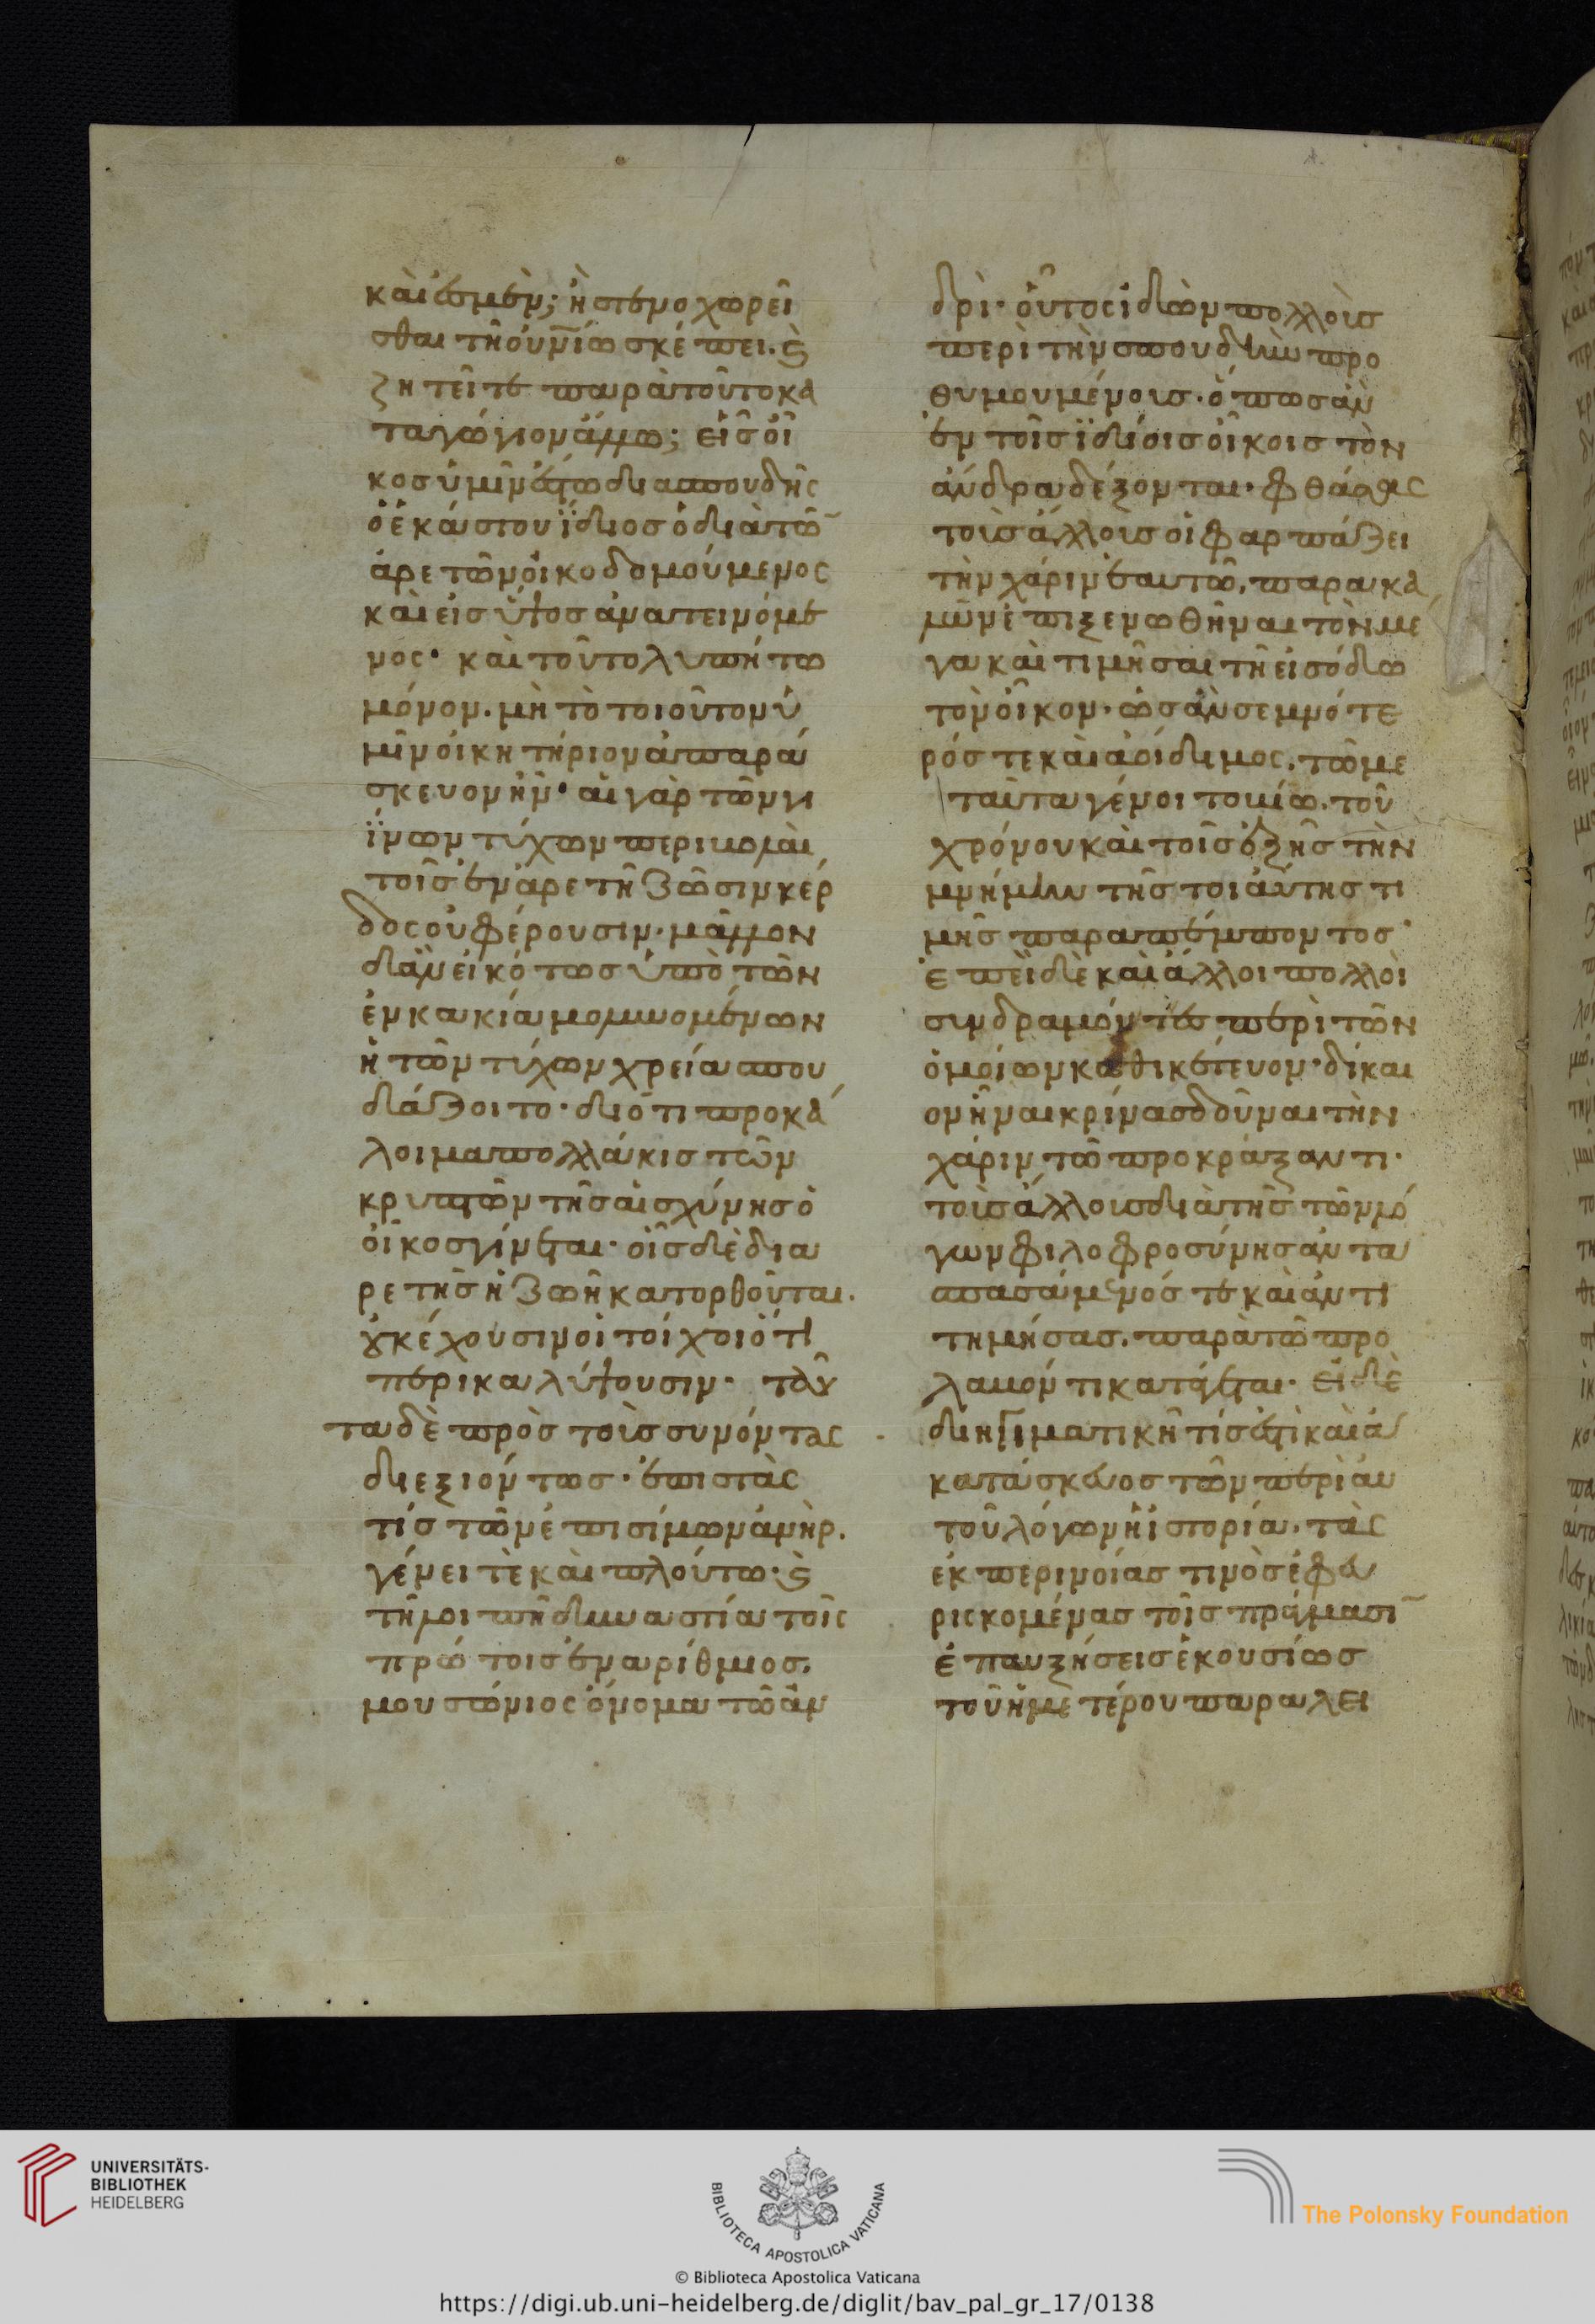 καὶ ἐσμὲν; ἢ στενοχωρεῖ
σθαι τῆ οὐνίω σκέπει. ϗ
ζητεῖτε παρὰ τοῦτο κα
ταγώγιον ἄλλω; εἷς οἶ
κος ὑμῖν ἔστω διὰ σπουδῆς
ὁ ἑκάστου ἴδιος ὁ διὰ τῶ
ἀρετῶν οἰκοδομούμενος
καὶ εἰς ὕψος ἀνατεινόμε
νος· καὶ τοῦτο λυπήτω
μόνον. μὴ τὸ τοιοῦτον ὑ
μῖν οἰκητήριον ἀπαρά
σκευον ἦν· αἱ γὰρ τῶν γη
ΐνων τύχων περιβολαὶ
τοῖς ἐν ἀρετῆ ζῶσιν κέρ
δος οὐ φέρουσιν. μᾶλλον
δ' ἂν εἰκότως ὑπὸ τῶν
ἐν κακία μολυνομένων
ἡ τῶν τύχων χρεία σπου
δάζοιτο· διότι προκά
λοιμα πολλάκις τῶν
κρυπτῶν τῆς αἰσχύνης ὁ
οἶκος γίνεται· οἷς δὲ δι' ἀ
ρετῆς ἡ ζωὴ κατορθοῦται.
οὐκ ἔχουσιν οἱ τοίχοι ὅ τι
περικαλύψουσιν· ταῦ
τα δὲ πρὸς τοὺς συνόντας
διεξιόντως· ἐπιστὰς
τίς τῶν ἐπισίμων ἀνὴρ.
γένει τὲ καὶ πλούτω· ϗ
τῆ λοιπῆ δυναστία τοῖς
πρώτοις ἐναρίθμιος.
μουσώνιος ὄνομα τῶ ἀν
δρὶ· οὗτος ἰδὼν πολλοὺς
περὶ τὴν σπουδὴν προ
θυμουμένους· ὅπως ἂν
ἐν τοῖς ϊδίοις οἴκοις τὸν
ἄνδρα δέξονται· φθάσας
τοὺς ἄλλους οἱ φαρπάζει
τὴν χάριν ἑαυτῶ, παρακα
λῶν ἐπιξενωθῆναι τὸν με
γα καὶ τιμῆσαι τῆ εἰσόδω
τὸν οἶκον. ὡς ἂν σεμνότε
ρός τε καὶ ἀοίδιμος. τῶ με
ταῦτα γένοιτο βίω. τοῦ
χρόνου καὶ τοῖς ἑξῆς τὴν
μνήμην τῆς τοιαύτης τι
μῆς παραπέμποντος·
ἐπεὶ δὲ καὶ ἄλλοι πολλοὶ
συνδραμόντες περὶ τῶν
ὁμοίων καθικέτευον· δίκαι
ον ἦναι κρίνας δοῦναι τὴν
χάριν τῶ προκράξαντι·
τοὺς ἄλλους διὰ τῆς τῶν λό
γων φιλοφροσύνης ἀντα
σπασάμενός τε καὶ ἀντι
τημήσας. παρὰ τῶ προ
λαβόντι κατάγεται· εἰ δὲ
διηγιματικὴ τίς ἐστὶ καὶ ἀ
κατάσκευος τῶν περὶ αυ
τοῦ λόγων ἡ ἱστορία. τὰς
ἐκ περινοίας τινὸς ἐφευ
ρισκομένας τοῖς πράγμασι
ἐπαυξήσεις ἑκουσίως
τοῦ ἡμετέρου παραλει
UNIVERSITÄTS-
BIBLIOTHEK
HEIDELBERG
BIBLIOTECA APOSTOLICA VATICANA
The Polonsky Foundation
© Biblioteca Apostolica Vaticana
https://digi.ub.uni-heidelberg.de/diglit/bav_pal_gr_17/0138